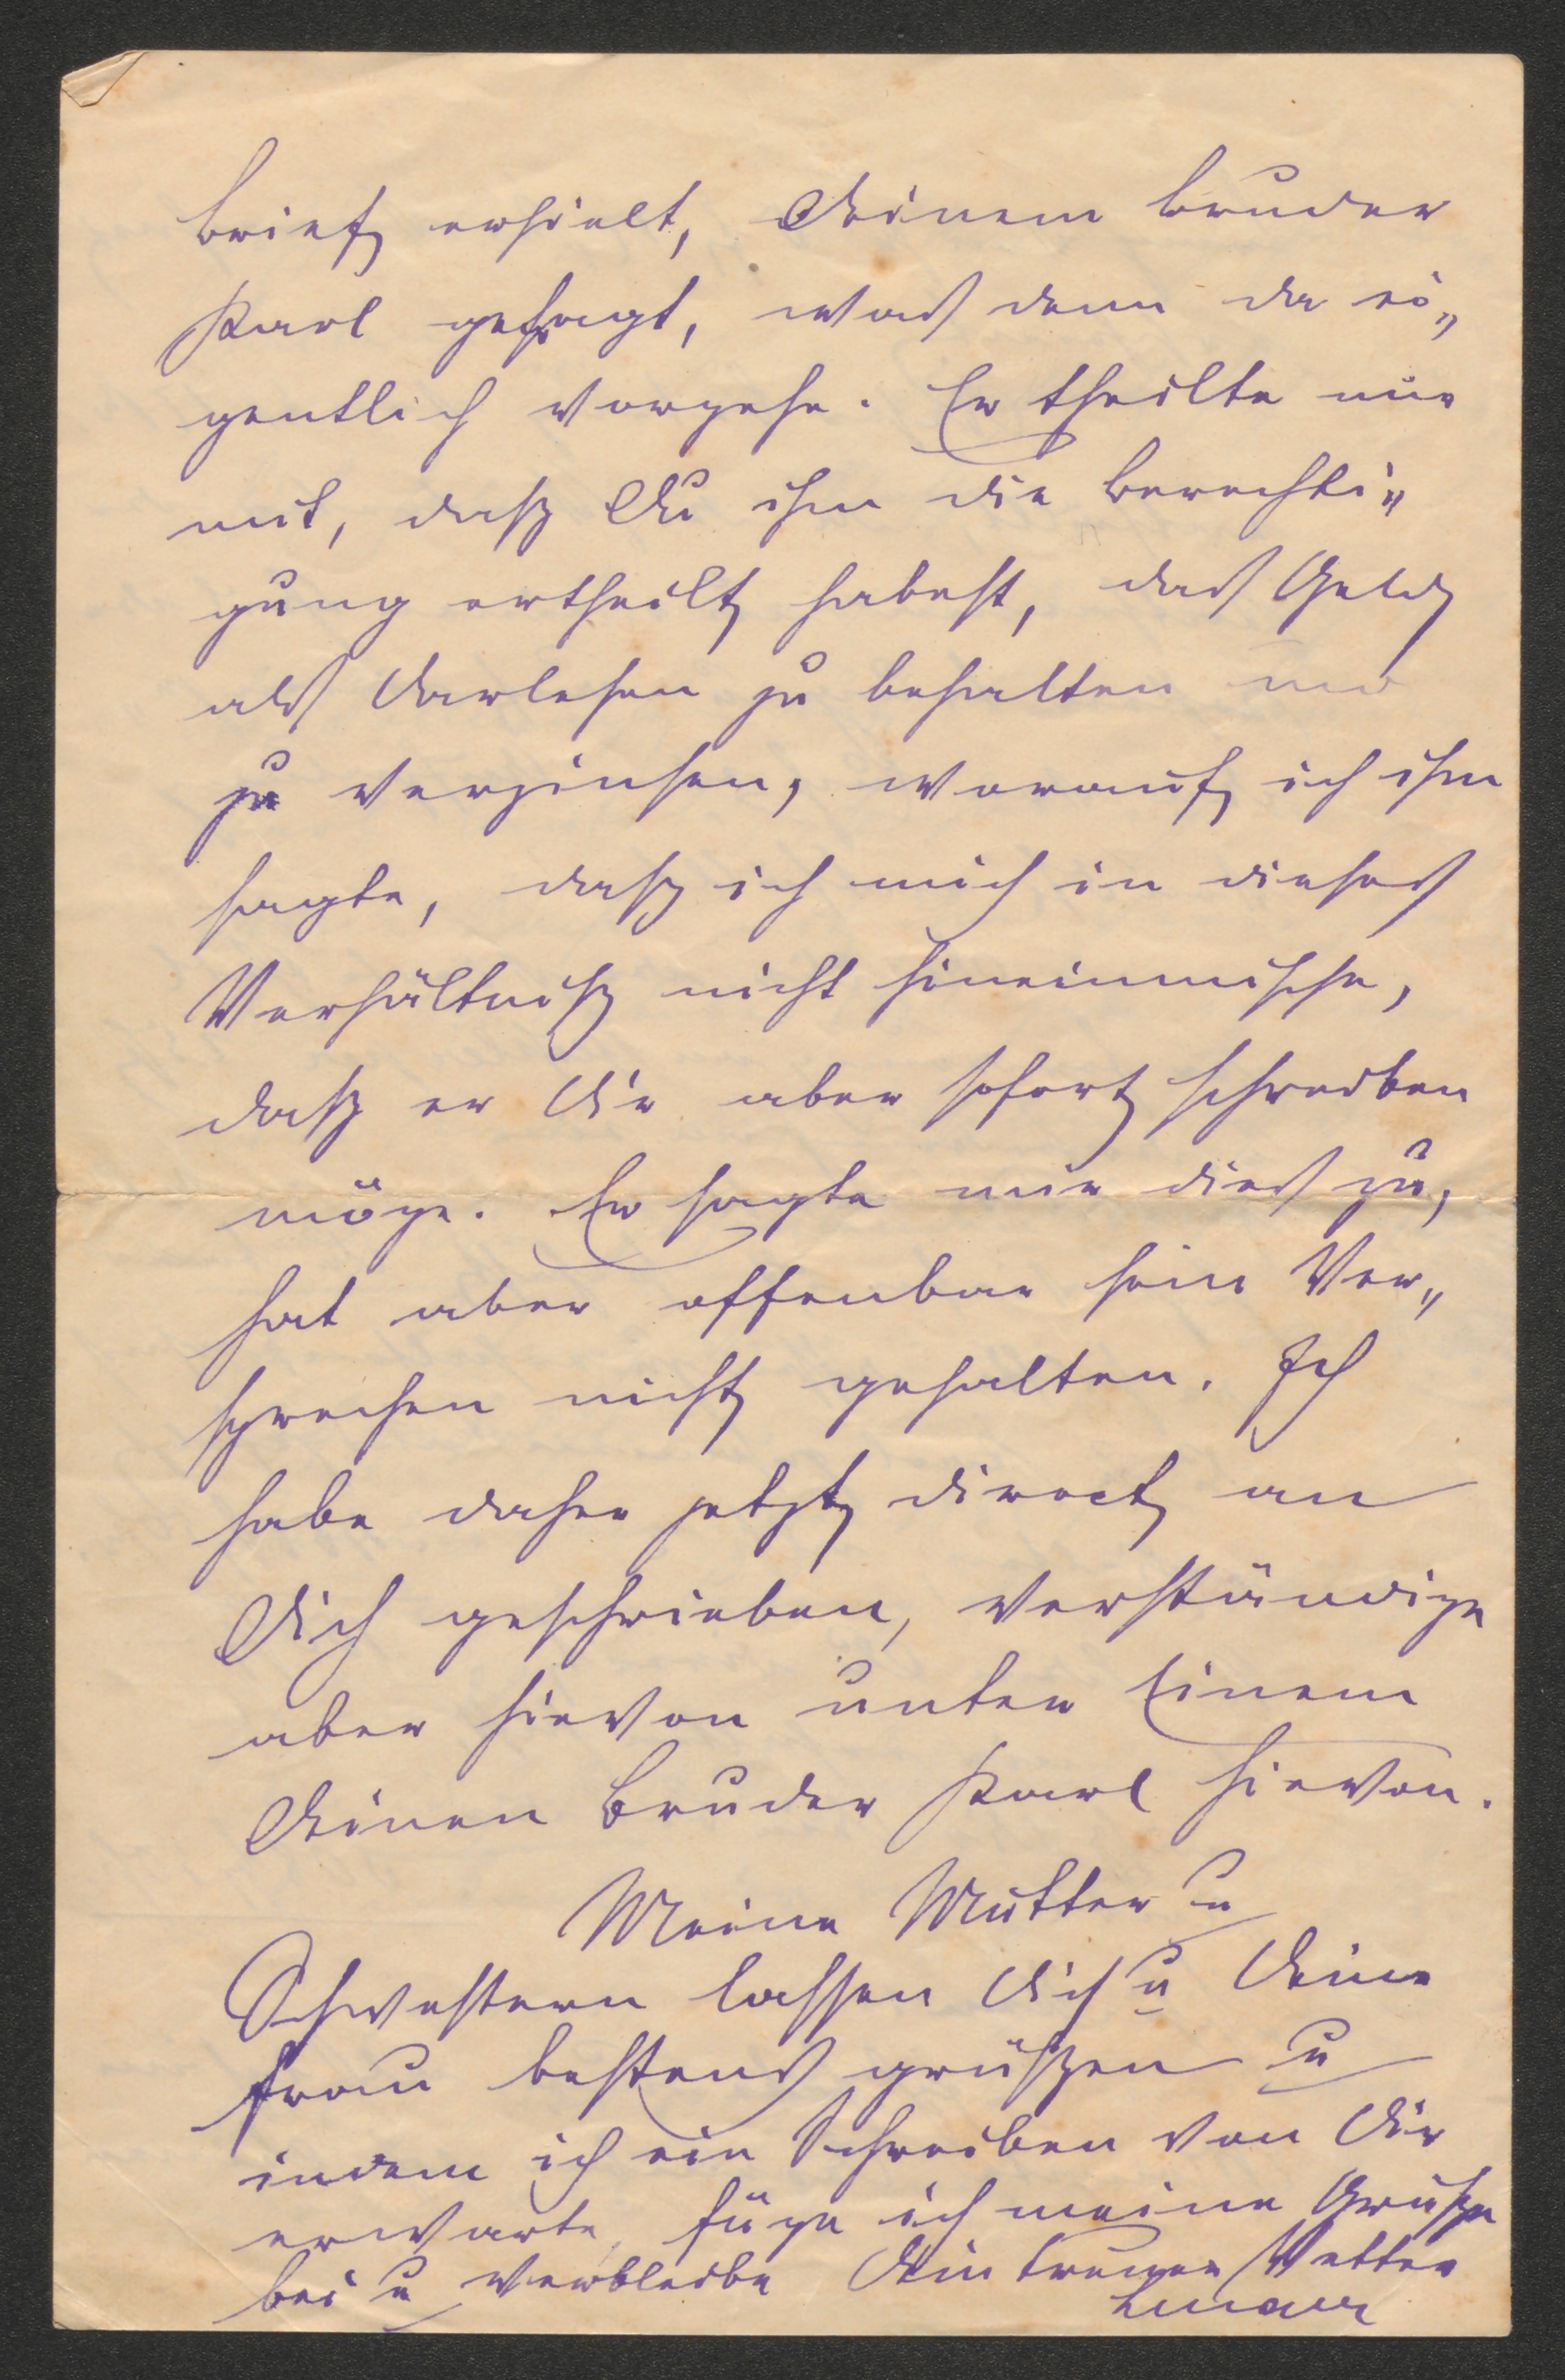 Brief erhielt, Deinem Bruder
Karl gesagt, was denn da ei„
gentlich vorgehe. Er theilte mir
mit, daß Du ihm die Berechti„
gung ertheilt habest, das Geld
als Darlehen zu behalten und
zu verzinsen, worauf ich ihm
sagte, daß ich mich in dieses
Verhältniß nicht hineinmische,
daß er Dir aber sofort schreiben
möge. Er sagte mir dies zu,
hat aber offenbar sein Ver„
sprechen nicht gehalten. Ich
habe daher jetzt direct an
Dich geschrieben, verständige
aber hievon unter Einem
Deinen Bruder Karl hievon.
Meine Mutter u
Schwestern lassen Dich u Deine
Frau bestens grüßen u
indem ich ein Schreiben von Dir
erwarte, füge ich meine Grüße
bei u verbleibe Dein treuer Vetter